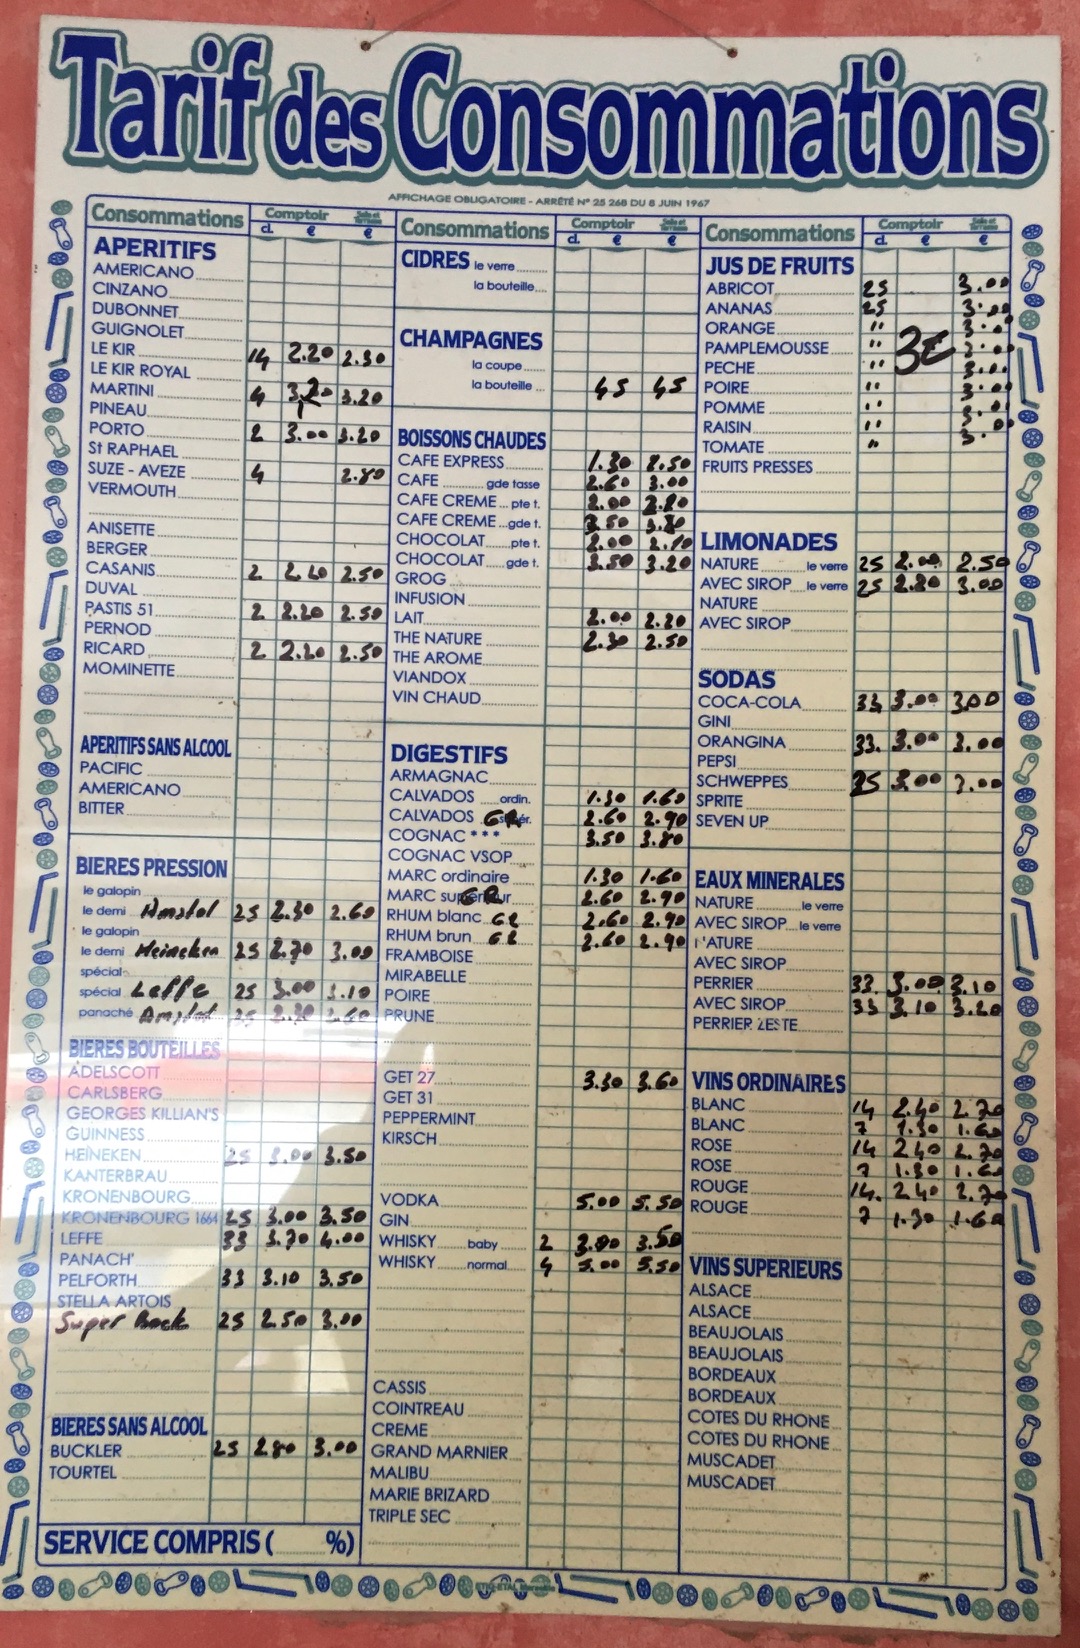 Tarif des Consommations
AFFICHAGE OBLIGATOIRE - ARRÊTÉ N° 25 268 DU 8 JUIN 1967
Consommations Comptoir Salle et Terrasse
d. € €
APERITIFS
AMERICANO
CINZANO
DUBONNET
GUIGNOLET
LE KIR 14 2.20 2.50
LE KIR ROYAL
MARTINI 4 3.20
PINEAU
PORTO 2 3.00 3.20
St RAPHAEL
SUZE - AVEZE 4 2.80
VERMOUTH
ANISETTE
BERGER
CASANIS 2 2.20 2.50
DUVAL
PASTIS 51 2 2.20 2.50
PERNOD
RICARD 2 2.20 2.50
MOMINETTE
APERITIFS SANS ALCOOL
PACIFIC
AMERICANO
BITTER
BIERES PRESSION
le galopin
le demi Amstel 25 2.30 2.60
le galopin
le demi Heineken 25 2.70 3.00
spécial
spécial Leffe 25 3.00 3.10
panaché Amstel 25 2.30 2.60
BIERES BOUTEILLES
ADELSCOTT
CARLSBERG
GEORGES KILLIAN'S
GUINNESS
HEINEKEN 25 3.00 3.50
KANTERBRAU
KRONENBOURG
KRONENBOURG 1664 25 3.00 3.50
LEFFE 33 3.70 4.00
PANACH'
PELFORTH 33 3.10 3.50
STELLA ARTOIS
Super Bock 25 2.50 3.00
BIERES SANS ALCOOL
BUCKLER 25 2.80 3.00
TOURTEL
SERVICE COMPRIS ( %)
Consommations Comptoir Salle et Terrasse
d. € €
CIDRES le verre
la bouteille
CHAMPAGNES
la coupe
la bouteille 45 45
BOISSONS CHAUDES
CAFE EXPRESS 1.30 2.50
CAFE gde tasse 2.60 3.00
CAFE CREME pte t. 2.00 2.20
CAFE CREME gde t. 3.50
CHOCOLAT pte t. 2.00 2.10
CHOCOLAT gde t. 3.50 3.20
GROG
INFUSION
LAIT 2.00 2.20
THE NATURE 2.30 2.50
THE AROME
VIANDOX
VIN CHAUD
DIGESTIFS
ARMAGNAC
CALVADOS ordin. 1.30 1.60
CALVADOS GR 2.60 2.90
COGNAC *** 3.50 3.80
COGNAC VSOP
MARC ordinaire 1.30 1.60
MARC supérieur GR 2.60 2.90
RHUM blanc GR 2.60 2.90
RHUM brun GR 2.60 2.90
FRAMBOISE
MIRABELLE
POIRE
PRUNE
GET 27 3.30 3.60
GET 31
PEPPERMINT
KIRSCH
VODKA 5.00 5.50
GIN
WHISKY baby 2 3.00 3.50
WHISKY normal 4 5.00 5.50
CASSIS
COINTREAU
CREME
GRAND MARNIER
MALIBU
MARIE BRIZARD
TRIPLE SEC
Consommations Comptoir Salle et Terrasse
d. € €
JUS DE FRUITS
ABRICOT 25 3.00
ANANAS 25 3.00
ORANGE " 3.00
PAMPLEMOUSSE " 3€ 3.00
PECHE " 3.00
POIRE " 3.00
POMME " 3.00
RAISIN " 3.00
TOMATE " 3.
FRUITS PRESSES
LIMONADES
NATURE le verre 25 2.00 2.50
AVEC SIROP le verre 25 2.80 3.00
NATURE
AVEC SIROP
SODAS
COCA-COLA 33 3.00 3.00
GINI
ORANGINA 33. 3.00 3.00
PEPSI
SCHWEPPES 25 3.00 3.00
SPRITE
SEVEN UP
EAUX MINERALES
NATURE le verre
AVEC SIROP le verre
NATURE
AVEC SIROP
PERRIER 33. 3.00 3.10
AVEC SIROP 33 3.10 3.20
PERRIER ZESTE
VINS ORDINAIRES
BLANC 14 2.40 2.70
BLANC 7 1.30 1.60
ROSE 14 2.40 2.70
ROSE 7 1.30 1.60
ROUGE 14. 2.40 2.70
ROUGE 7 1.30 1.60
VINS SUPERIEURS
ALSACE
ALSACE
BEAUJOLAIS
BEAUJOLAIS
BORDEAUX
BORDEAUX
COTES DU RHONE
COTES DU RHONE
MUSCADET
MUSCADET